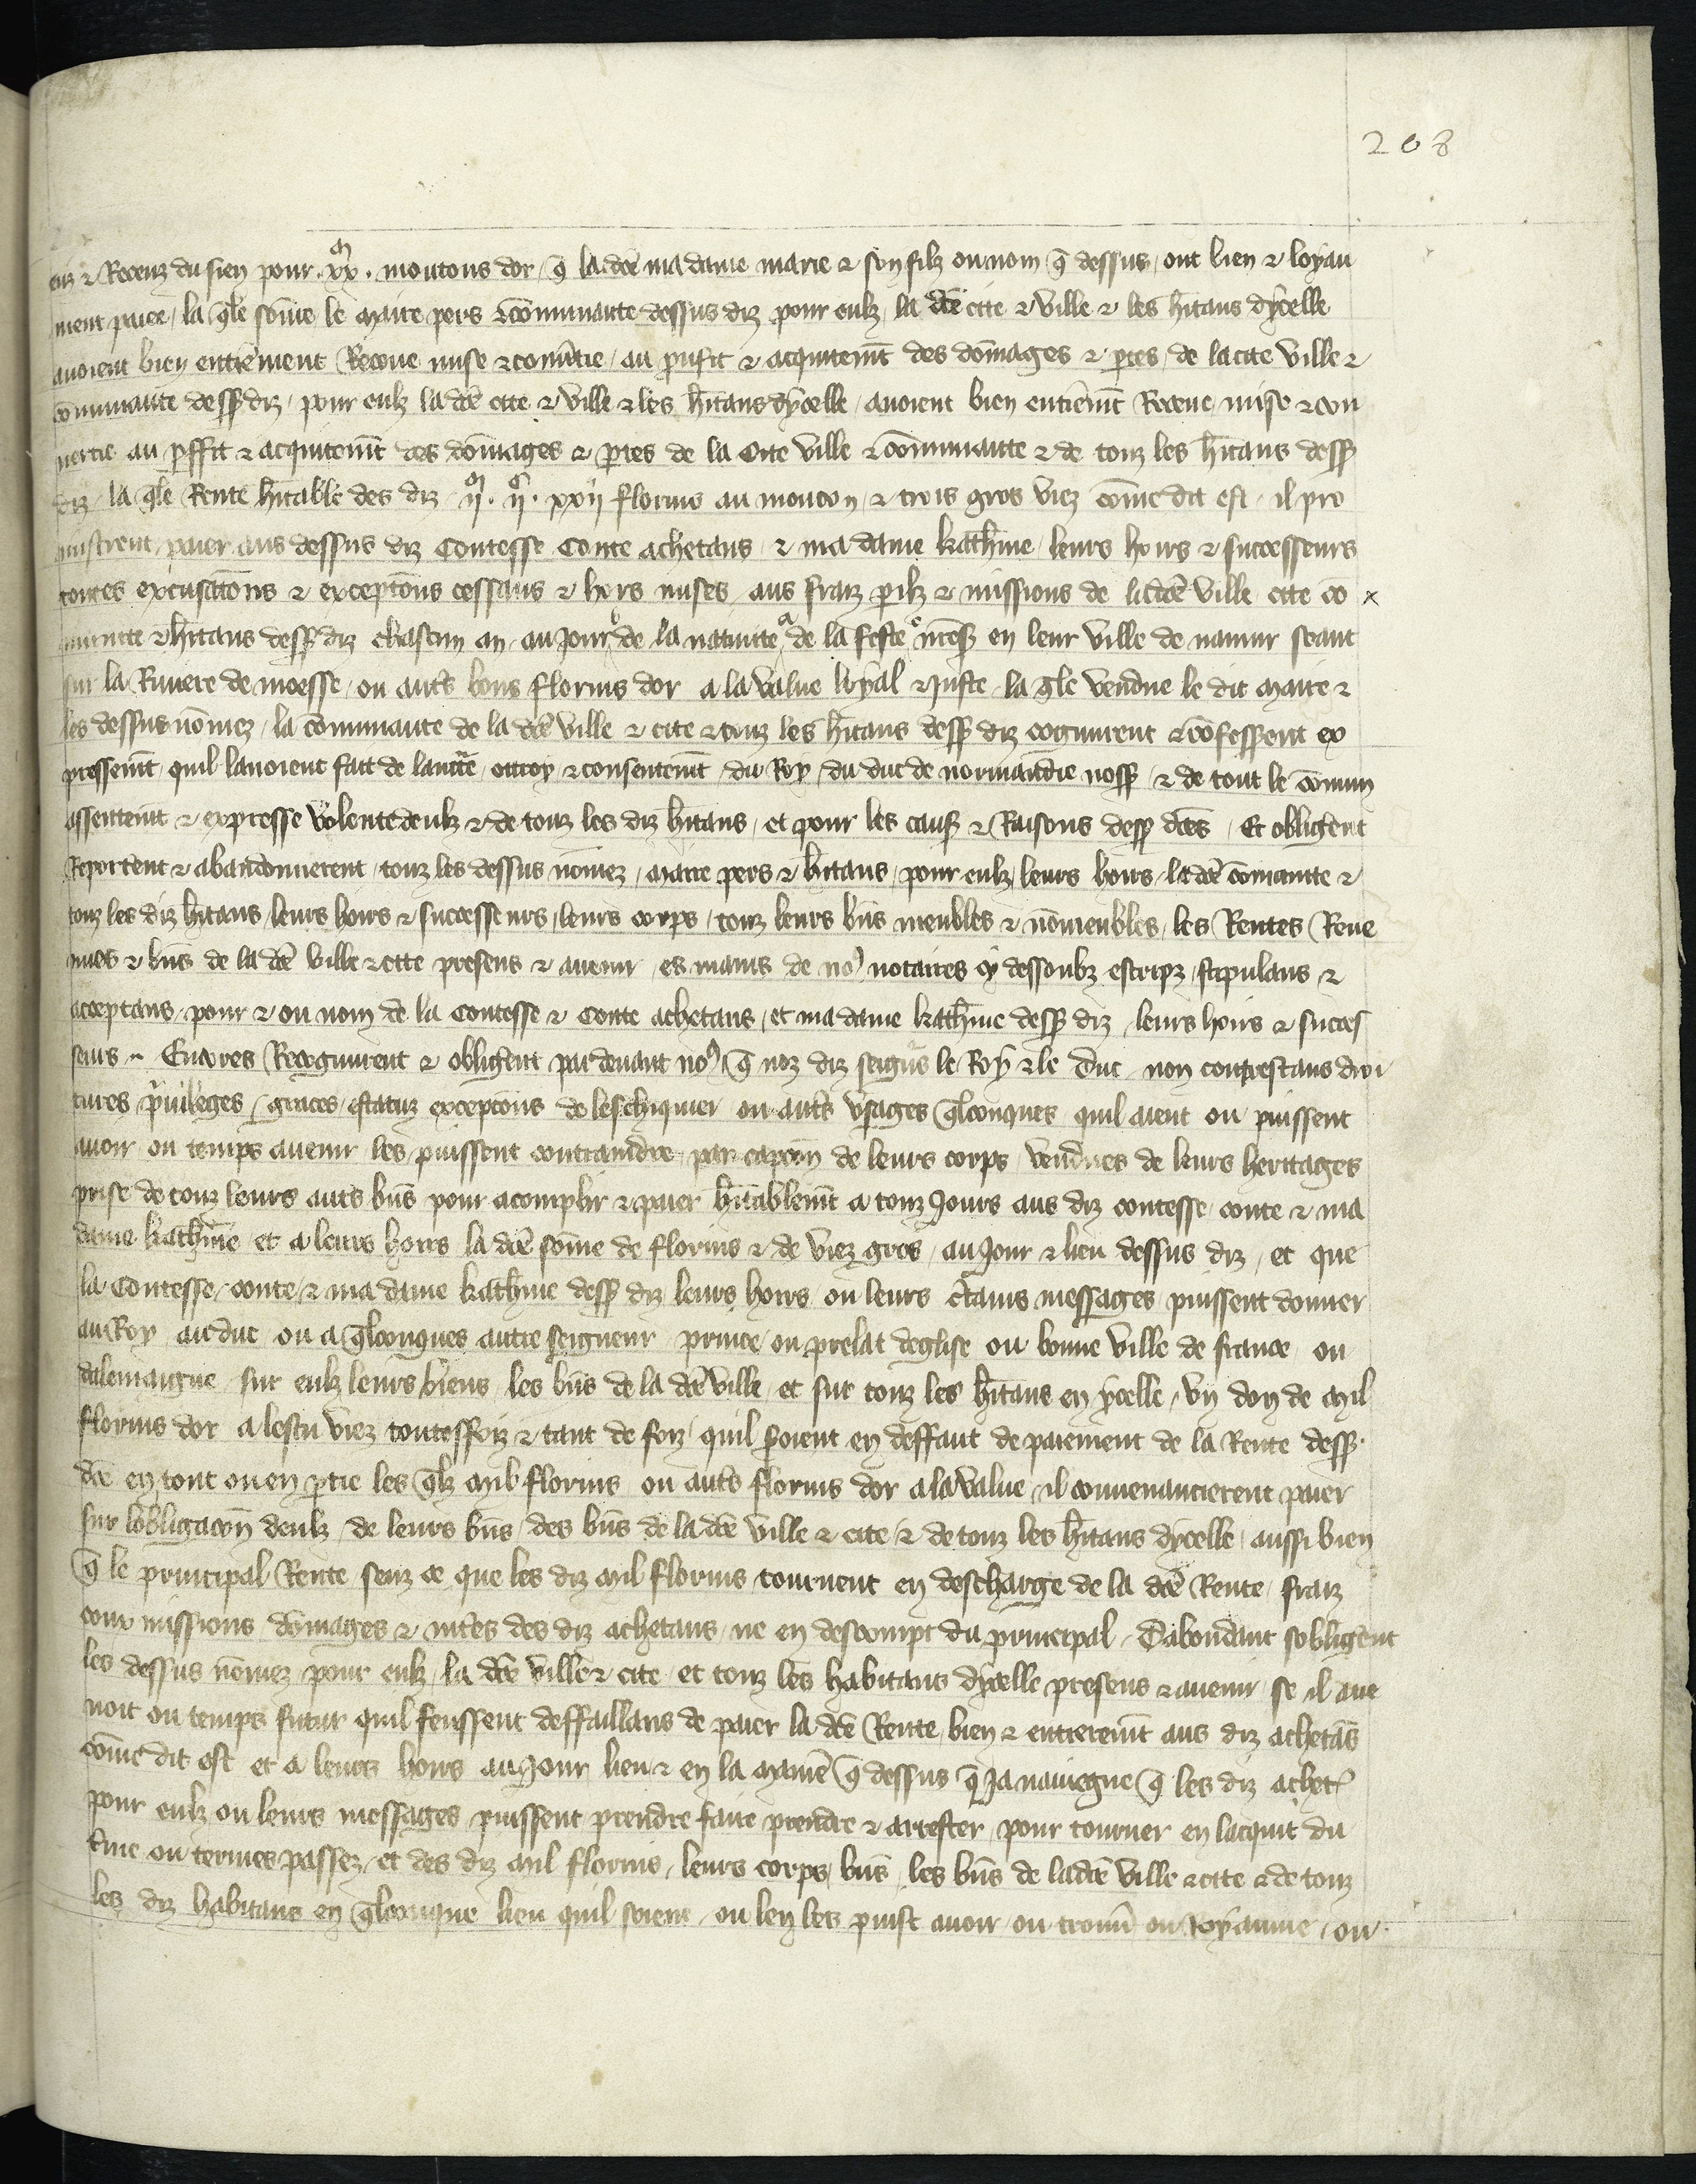 208
euz & Receuz du sien pour .xx.ᵐ moutons dor q̃ lad̃ce madame marie & son filz ou nom q̃ dessus ont bien & loyau
ment paiee la q̃le som̃e le maire pers & cõmunaute dessus diz pour eulz la dc̃e cite & ville & les hĩtans dycelle
auoient bien entierement Receue mise & conu̾tie au p̃ufit & acquitemñt des dom̃ages & p̱tes de la cite ville &
cõmunaute dess̱ diz pour eulz la dc̃e cite & ville & les hĩtans dycelle auoient bien entierem̃t Receue mise & con
uertie au p̱ffit & acquitem̃t des dom̃ages & p̱tes de la Cite ville & cõmunaute & de touz les hĩtans dess̱
diz la q̃le Rente hĩtable des diz ijᵐ. ijᶜ. xxij florins au mouton & trois gros viez com̃e dit est il pro
mistrent paier aus dessus diz Contesse Conte achetans & madame kath̾ine leurs hoirs & successeurs
toutes excusac̃ons & excepc̃ons cessans & hors mises aus fraiz p̱ilz & missions de ladc̃e ville cite cõ x
munite & hĩtans dess̱ diz chascun an au jour de la natiuite de la feste nr̃e s̱ en leur ville de namur seant
sur la Riuiere de moesse ou aut̾s bons florins dor a la value loyal & juste la q̃le vendue le dit maire &
les dessus nom̃ez la cõmunaute de la dc̃e ville & cite & touz les hĩtans dess̱ diz cognurent & cõfesserent ex
pressem̃t quil lauoient fait de lauct̃e ottroy & consentem̃t du Roy du duc de normandie noss̱ & de tout le cõmun
assentem̃t & expresse volente deulz & de touz les diz hĩtans et pour les caus̱ & Raisons dess̱ dc̃es Et obliger̃ent
Reporter̃ent & abandonnerent touz les dessus nom̃ez maire pers & hĩtans pour eulz leurs hoirs la dc̃e cõmunite &
touz les diz hĩtans leurs hoirs & successeurs leurs corps touz leurs biñs meubles & nõmeubles les Rentes Reue
nues & biñs de la dc̃e ville & cite presens & auenir es mains de noꝰ notaires cy dessoubz escripz stipulans &
acceptans pour & ou nom de la Contesse & Conte achetans et madame kath̾ine dess̱ diz leurs hoirs & succes
seurs Encores Recognurent & obliger̃ent par deuant noꝰ q̃ noz diz seigneurs le Roy & le duc non contrestans droi
tures p̾uileges graces estatuz excepc̃ons de leschiquier ou aut̾s vsages q̃lconques quil aient ou puissent
auoir ou temps auenir les puissent contraindre par capc̃on de leurs corps vendues de leurs heritages
prise de touz leurs aut̾s biñs pour acomplir & paier hĩtablem̃t a touz jours aus diz contesse conte & ma
dame kath̾ine et a leurs hoirs la dc̃e som̃e de florins & de viez gros au jour & lieu dessus diz et que
la Contesse conte & madame kath̾ine dess̱ diz leurs hoirs ou leurs c̾tains messages puissent donner
au Roy au duc ou a q̃lconques autre seigneur prince ou prelat deglise ou bonne ville de france ou
dalemaigne sur eulz leurs biens les biñs de la dc̃e ville et sur touz les hĩtans en ycelle vn don de mil
florins dor a lescu viez toutesfoiz & tant de foiz quil s̱oient en deffaut de paiement de la Rente dess̱
dc̃e en tout ou en p̱tie les q̃lz mil florins ou aut̾s florins dor a la value il conuenancierent paier
sur lobligac̃on deulz de leurs biñs des biñs de la dc̃e ville & cite & de touz les hĩtans dycelle aussi bien
q̃ le principal Rente senz ce que les diz mil florins tournent en descharge de la dc̃e Rente fraiz
coux missions dom̃ages & int̾es des diz achetans ne en descompt du principal Dabondant sobliger̃ent
les dessus nom̃ez pour eulz la dc̃e ville & cite et touz les habitans dycelle presens & auenir se il aue
noit ou temps futur quil feussent deffaillans de paier la dc̃e Rente bien & entierem̃t aus diz achetãs
com̃e dit est et a leurs hoirs au jour lieu & en la manie̾ q̃ dessus q̃ Ja nauiegne q̃ les diz achet̾
pour eulz ou leurs messages puissent prendre faire prendre & arrester pour tourner en lacquit du
t̾me ou termes passez et des diz mil florins leurs corps biñs les biñs de ladc̃e ville & cite & de touz
les diz habitans en q̃lconque lieu quil soient ou len les puist auoir ou trouu̾ ou Royaume ou